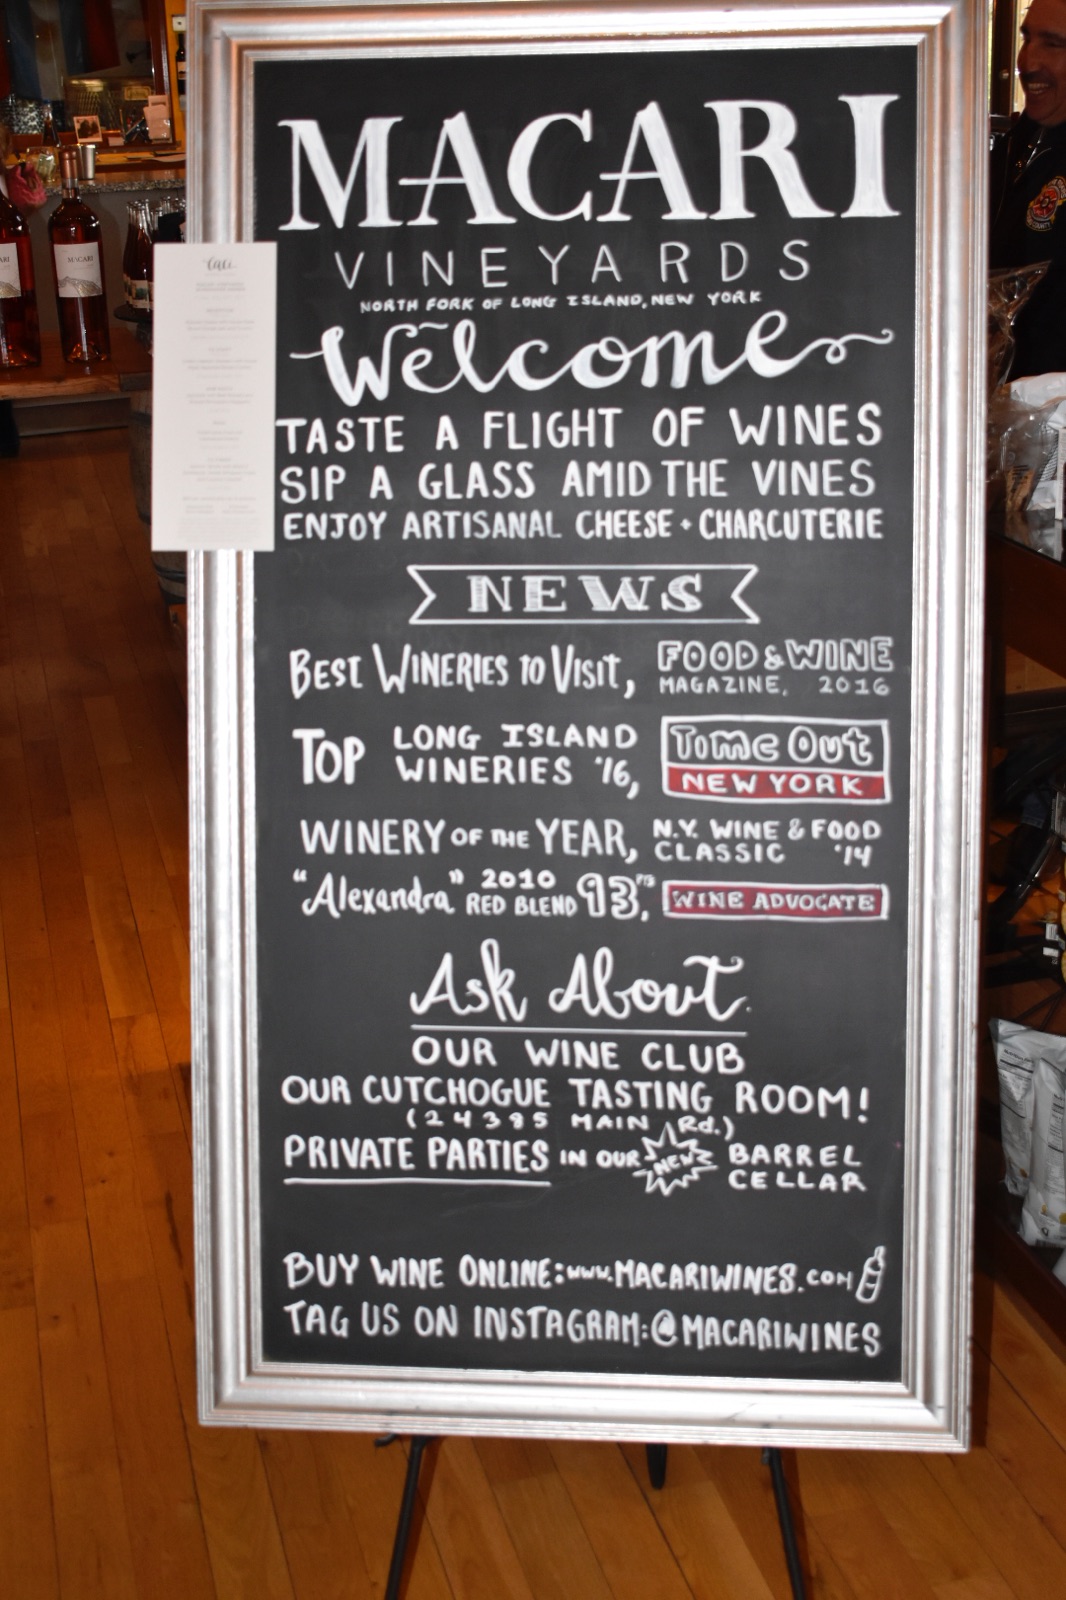 MACARI
VINEYARDS
NORTH FORK OF LONG ISLAND, NEW YORK
Welcome
TASTE A FLIGHT OF WINES
SIP A GLASS AMID THE VINES
ENJOY ARTISANAL CHEESE + CHARCUTERIE
NEWS
BEST WINERIES TO VISIT, FOOD & WINE
MAGAZINE, 2016
TOP LONG ISLAND
WINERIES '16,
Time Out
NEW YORK
WINERY OF THE YEAR, N.Y. WINE & FOOD
CLASSIC '14
"Alexandra" 2010
RED BLEND 93 PTS, WINE ADVOCATE
Ask About
OUR WINE CLUB
OUR CUTCHOGUE TASTING ROOM!
(24385 MAIN Rd.)
PRIVATE PARTIES IN OUR NEW BARREL
CELLAR
BUY WINE ONLINE: www.MACARIWINES.COM
TAG US ON INSTAGRAM: @MACARIWINES
MACARI